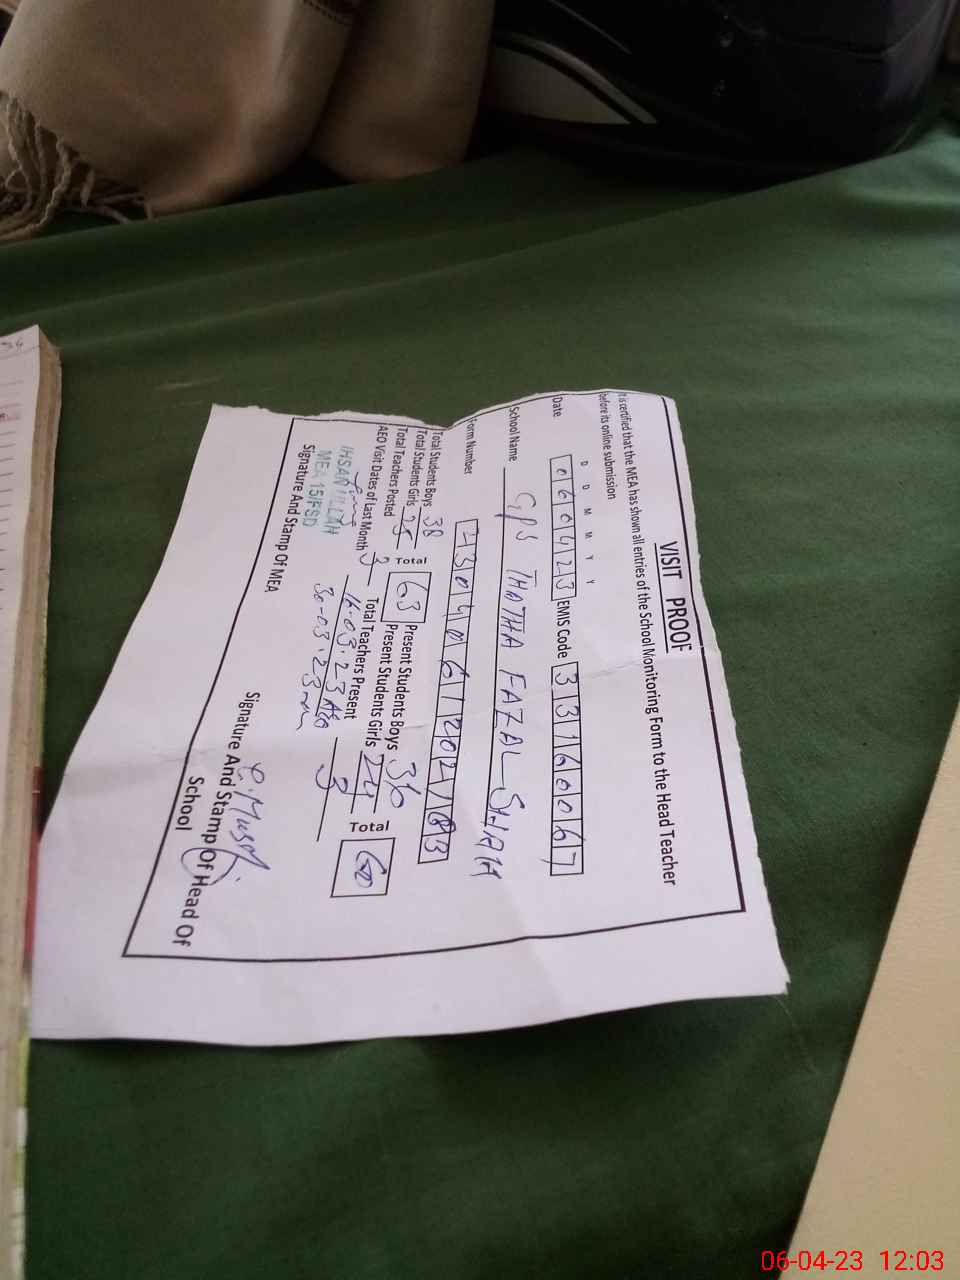 VISIT PROOF
It is certified that the MEA has shown all entries of the School Monitoring Form to the Head Teacher
before its online submission
D D M M Y Y
Date 060423 EMIS Code 33160067
School Name GPS THATHA FAZAL SHAH
Form Number
Total Students Boys 38 Present Students Boys 36
Total Students Girls 25 Total 63 Present Students Girls 24 Total 60
Total Teachers Posted 3 Total Teachers Present 3
AEO Visit Dates of Last Month 16.03.23
30-03.23
IHSAN ULLAH
MEA 15/FSD
Signature And Stamp Of MEA
Signature And Stamp Of Head Of
School
54
06-04-23 12:03